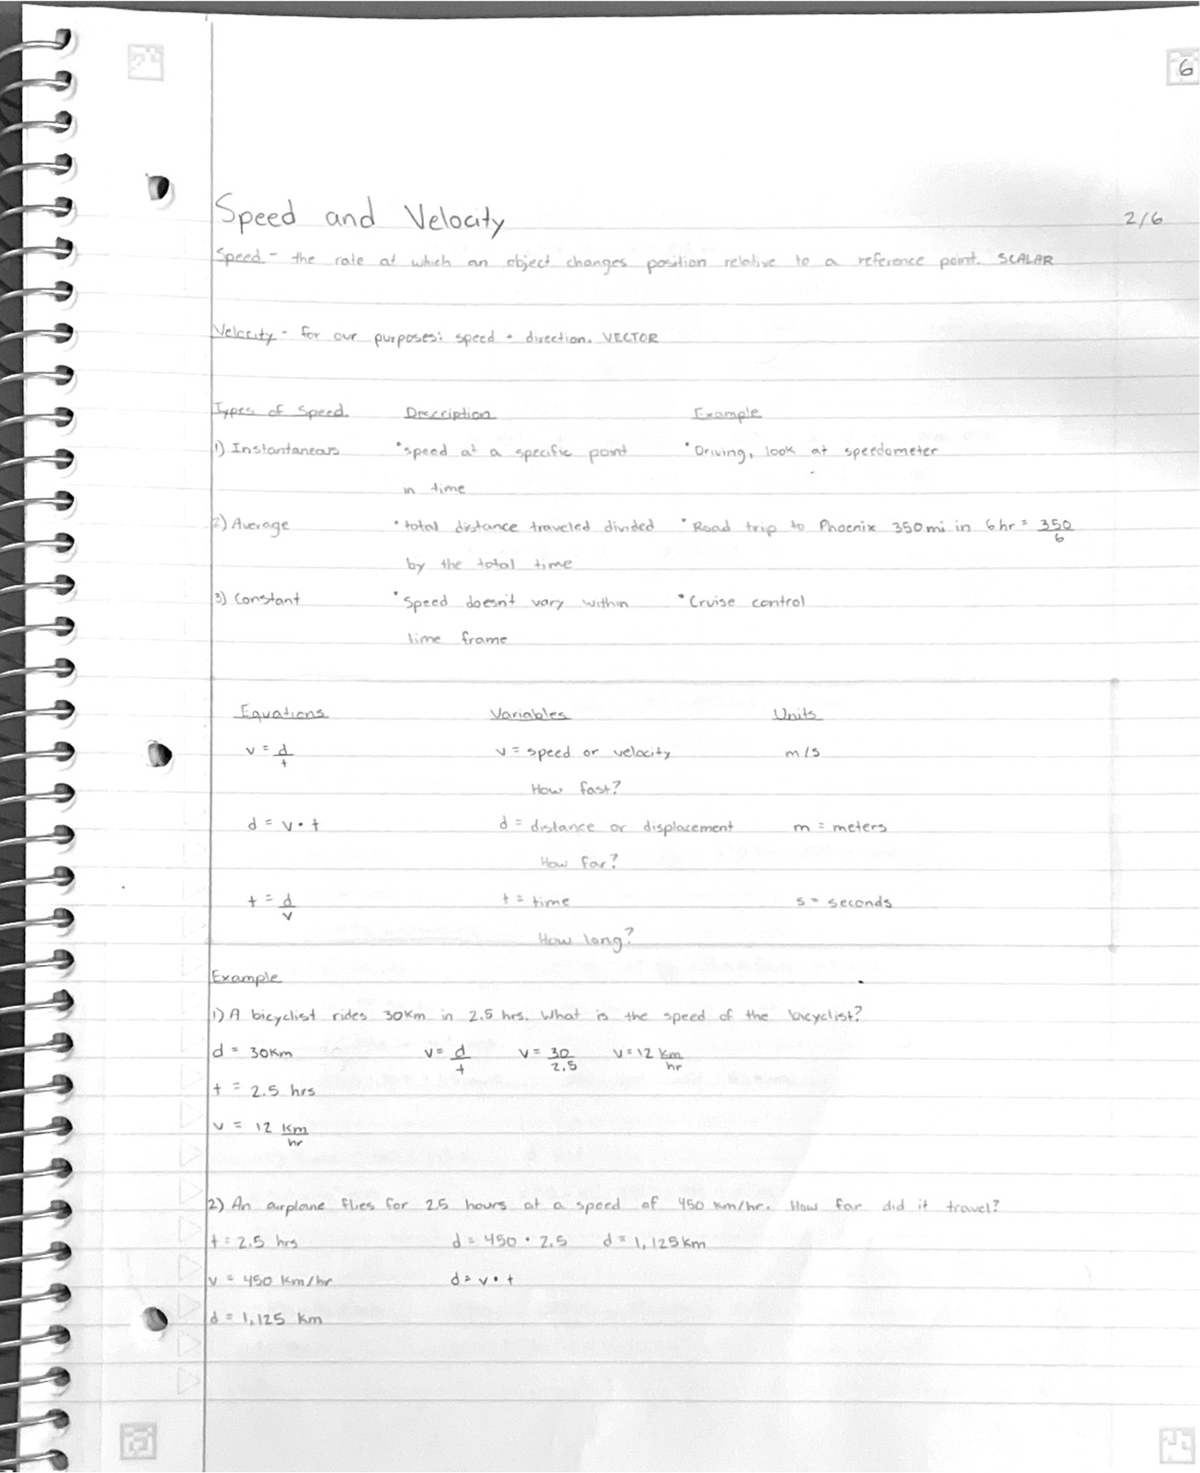 6
Speed and Velocity 2/6
Speed - the rate at which an object changes position relative to a reference point. SCALAR
Velocity - for our purposes: speed + direction. VECTOR
Types of Speed Description Example
1) Instantaneous • speed at a specific point • Driving, look at speedometer
in time
2) Average • total distance traveled divided • Road trip to Phoenix 350mi in 6hr = 350/6
by the total time
3) Constant • Speed doesn't vary within • Cruise control
time frame
Equations Variables Units
v = d/t v = speed or velocity m/s
How fast?
d = v • t d = distance or displacement m = meters
How far?
t = d/v t = time s = seconds
How long?
Example
1) A bicyclist rides 30km in 2.5 hrs. What is the speed of the bicyclist?
d = 30km v = d/t v = 30/2.5 v = 12 km/hr
t = 2.5 hrs
v = 12 km/hr
2) An airplane flies for 2.5 hours at a speed of 450 km/hr. How far did it travel?
t = 2.5 hrs d = 450 • 2.5 d = 1,125km
v = 450 km/hr d = v • t
d = 1,125 km